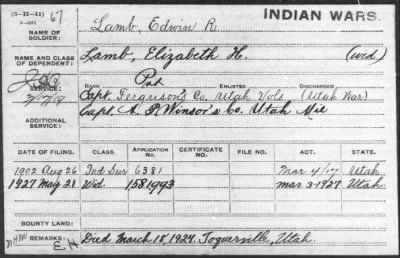 (3-11-11)
67
INDIAN WARS.
NAME OF SOLDIER: Lamb, Edwin R.
NAME AND CLASS OF DEPENDENT: Lamb, Elizabeth H. (wid)
SERVICE: RANK Pvt ENLISTED DISCHARGED
3/17/19 Capt. Ferguson's Co. Utah Vols (Utah War)
ADDITIONAL SERVICE: Capt. A. P. Winsor's Co. Utah Mil
DATE OF FILING. CLASS. APPLICATION NO. CERTIFICATE NO. FILE NO. ACT. STATE.
1902 Aug 26 Ind Sur 6381 Mar 4/17 Utah
1927 May 21 Wid. 1581993 Mar 3-1927 Utah
BOUNTY LAND:
REMARKS: Died March 18, 1924. Toquerville, Utah.